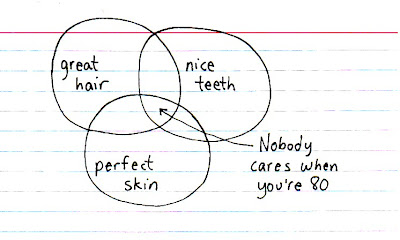 great
hair
nice
teeth
perfect
skin
Nobody
cares when
you're 80